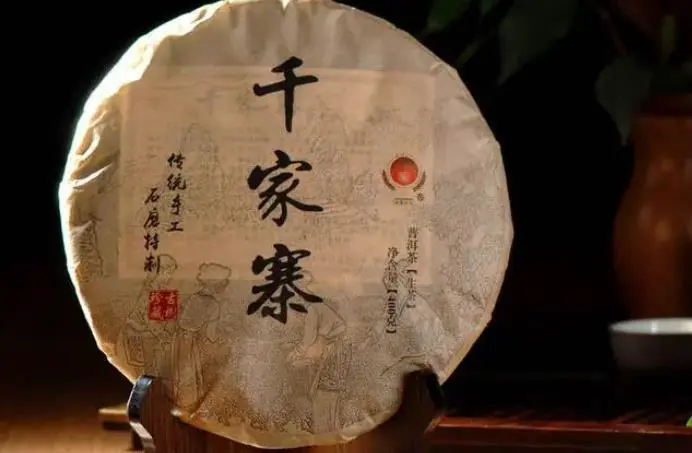 千家寨
普洱茶【生茶】
净含量【400克】
传统手工
石磨特制
古树
珍藏